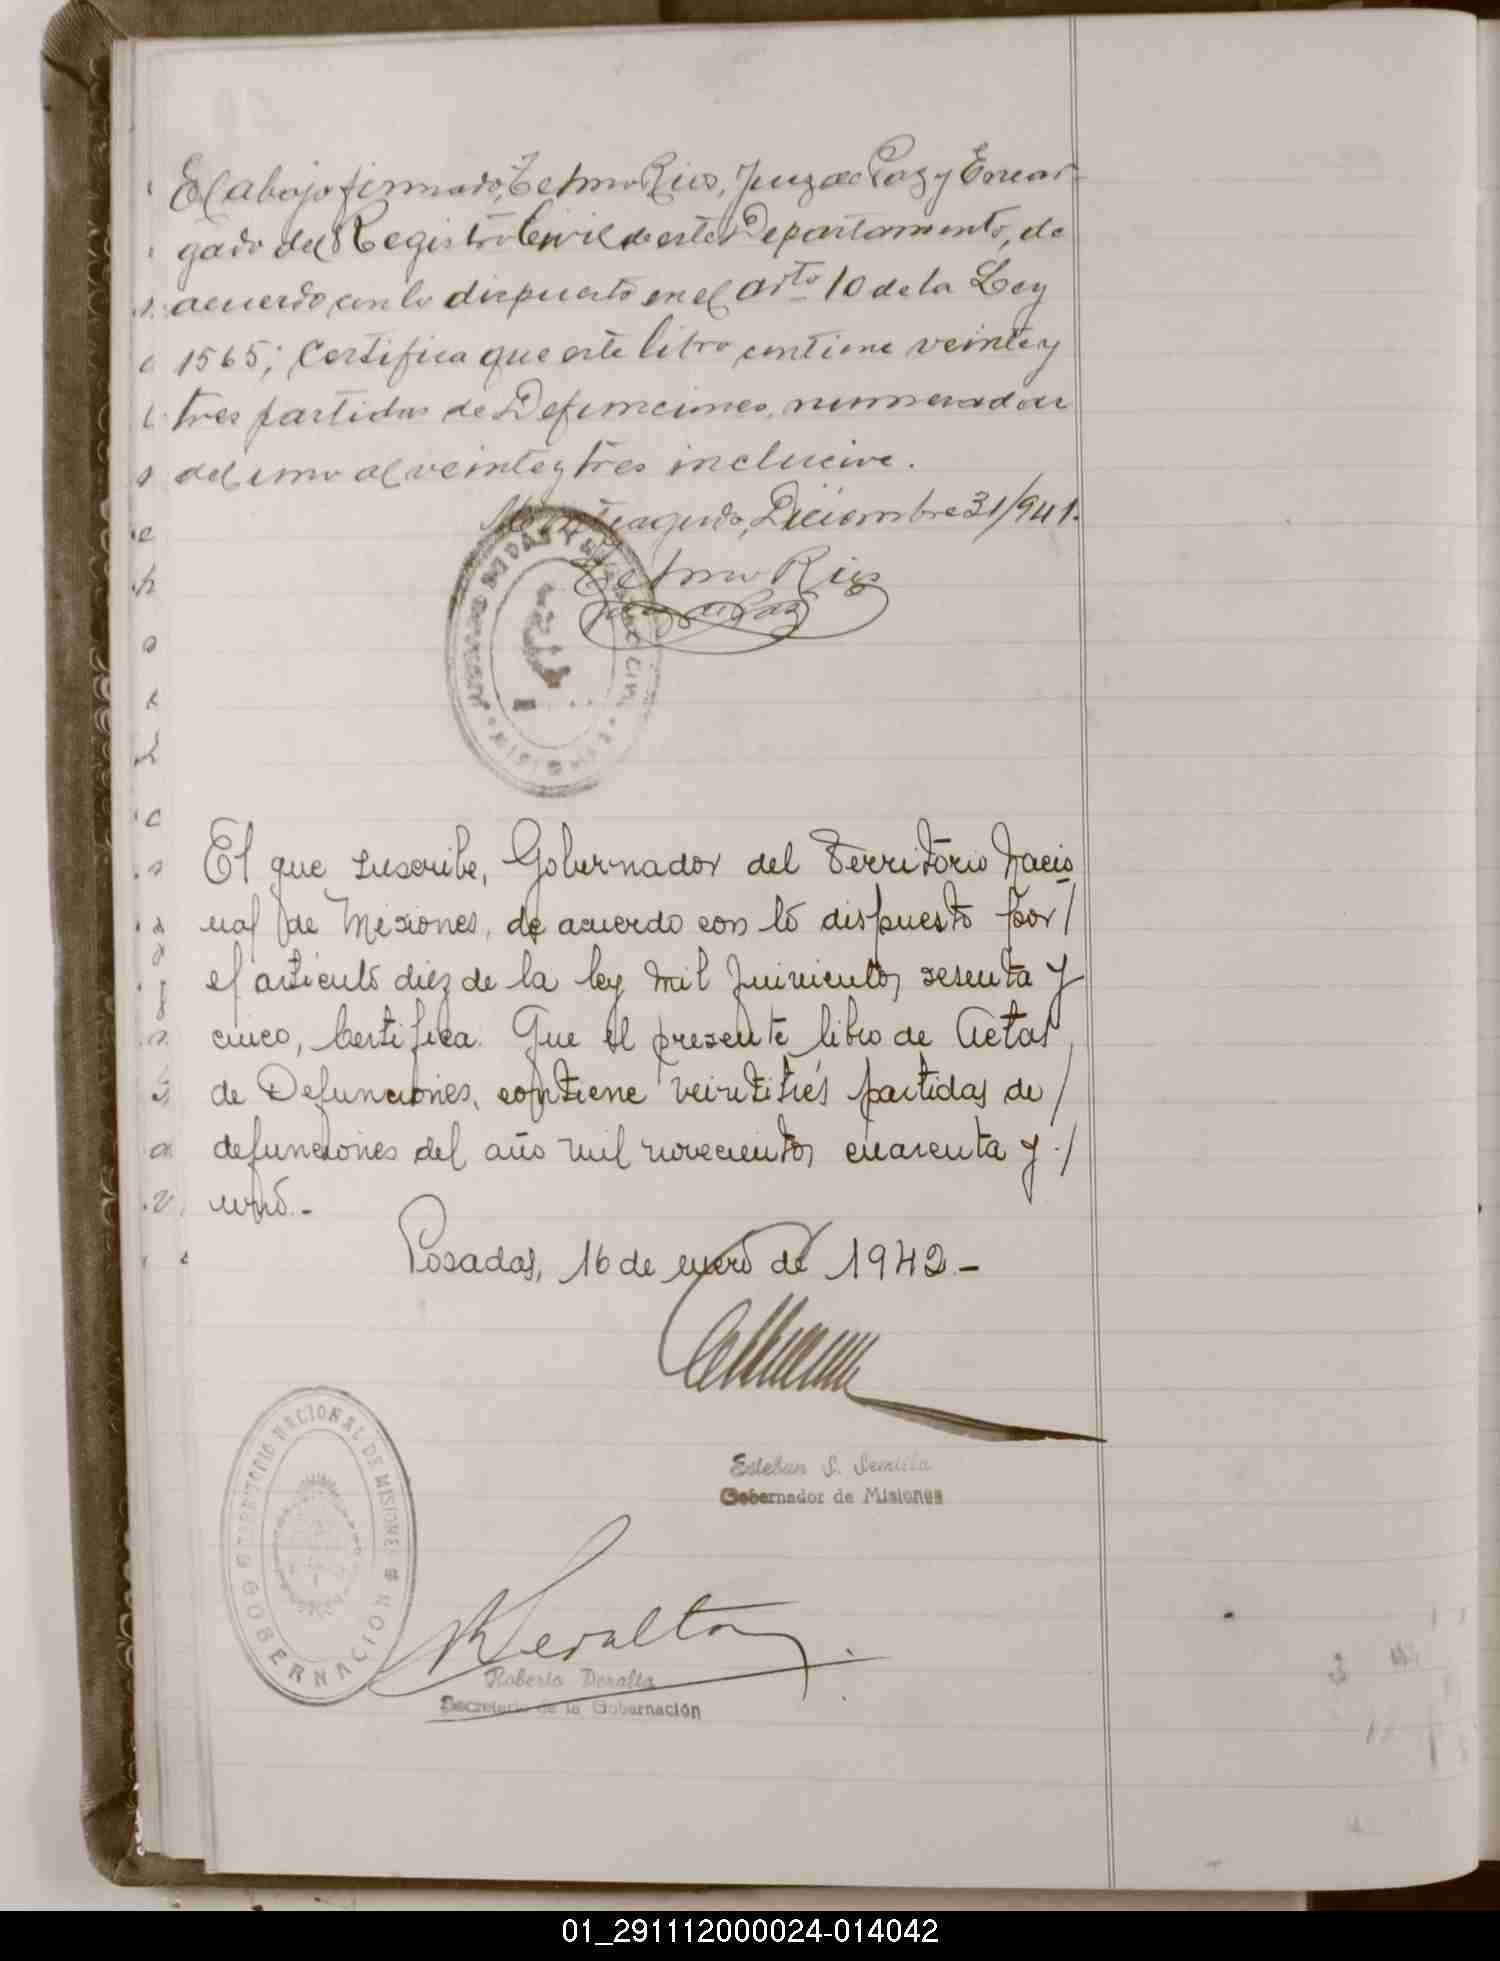 El abajo firmado, Telmo Rios, Juez de Paz y Encar-
gado del Registro Civil de este Departamento, de
acuerdo con lo dispuesto en el arto 10 de la Ley
1565; Certifica que este libro contiene veinte y
tres partidas de Defunciones, numeradas
del uno al veinte y tres inclusive.
Monteagudo, Diciembre 31/941.
Telmo Rios
Juez de Paz
CIVIL
MISIONES
El que suscribe, Gobernador del Territorio Nacio
nal de Misiones, de acuerdo con lo dispuesto por/
el artículo diez de la ley mil quinientos sesenta y
cinco, Certifica: Que el presente libro de Actas
de Defunciones, contiene veintitrés partidas de/
defunciones del año mil novecientos cuarenta y ./
uno.-
Posadas, 16 de enero de 1942.-
Esteban S. Semilla
Gobernador de Misiones
TERRITORIO NACIONAL DE MISIONES
GOBERNACION
Peralta
Roberto Peralta
Secretario de la Gobernación
01_291112000024-014042